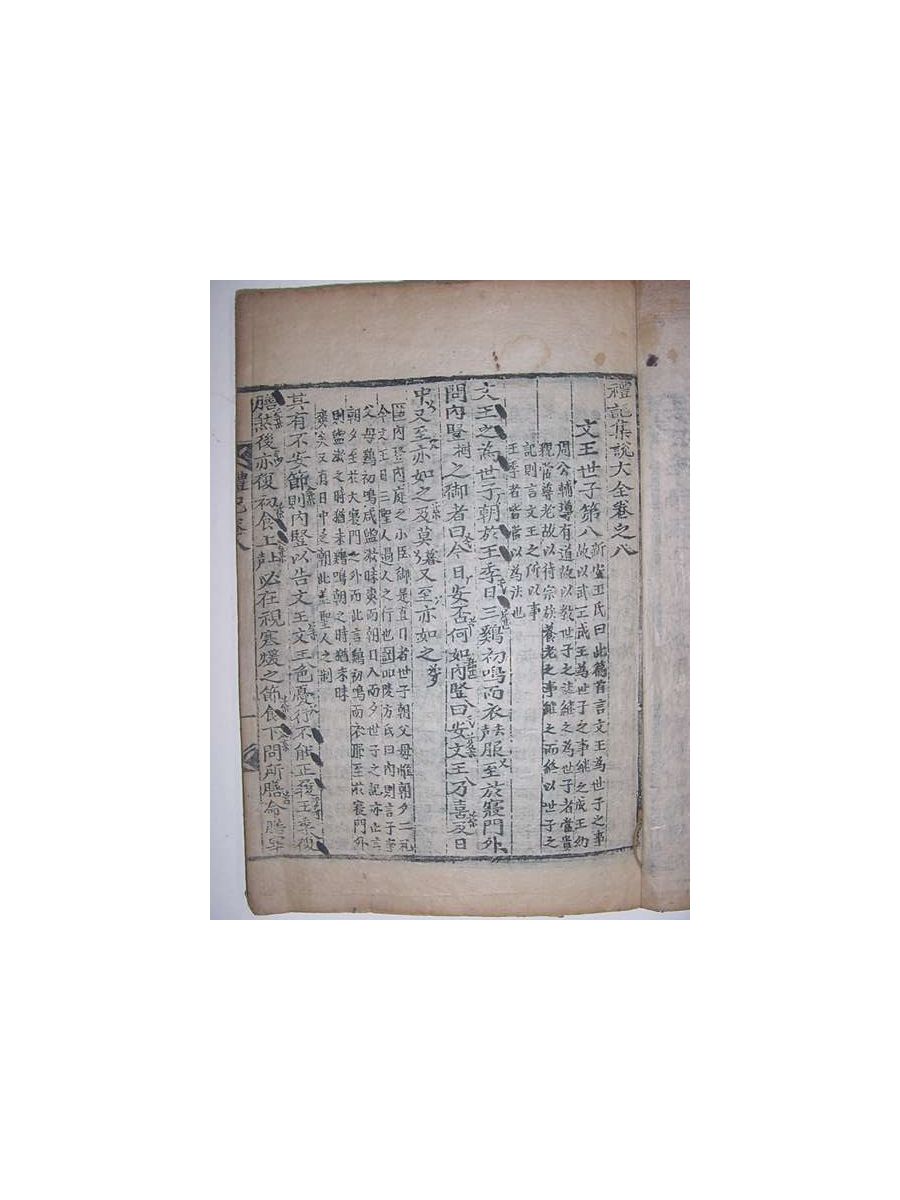 禮記集說大全卷之八
文王世子第八
新安王氏曰此篇首言文王為世子之事
故以武王成王為世子之事継之成王幼
周公輔導有道故以教世子之法継之為世子者當貴
親當尊老故以待宗族養老之事継之而終以世子之
記則言文王之所以事
王季者皆當以為法也
文王之為世子朝於王季日三鷄初鳴而衣服至於寢門外
問內竪之御者曰今日安否何如內竪曰安文王乃喜及日
中又至亦如之及莫又至亦如之
內竪內庭之小臣御是直日者世子朝父母惟朝夕二禮
今文王日三聖人過人之行也
父母鷄初鳴咸盥漱昧爽而朝日入而夕世子之記亦止言
朝夕至於大寢門之外而此言鷄初鳴而衣服至於寢門外
則盥漱之時猶未鷄鳴朝之時猶未昧
爽矣又有日中之朝此盖聖人之制
其有不安節則內竪以告文王文王色憂行不能正履王季復
膳然後亦復初食上必在視寒煖之節食下問所膳命膳宰
禮記卷八